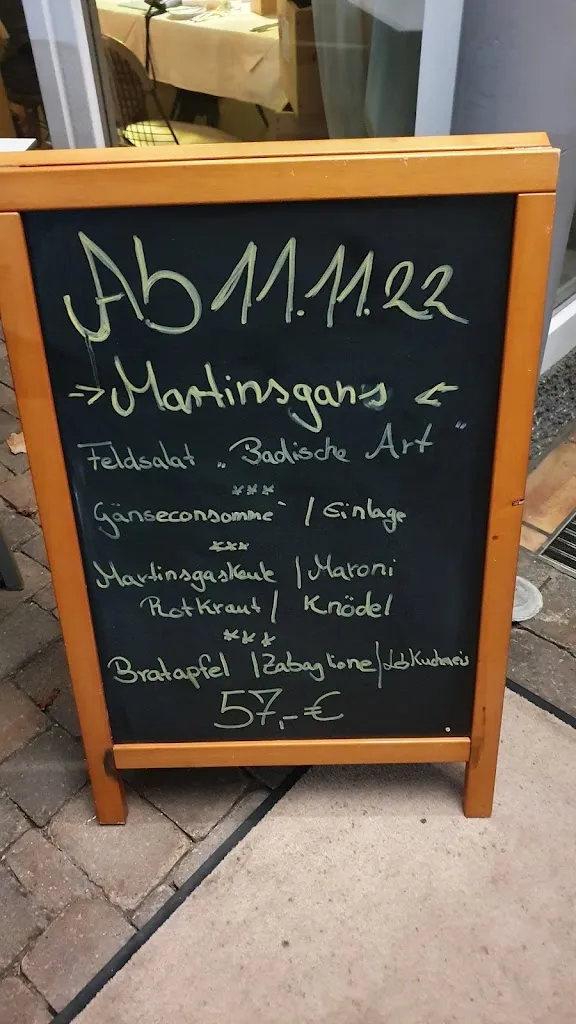 Ab 11.11.22
-> Martinsgans <-
Feldsalat „Badische Art"
***
Gänseconsommé / Einlage
***
Martinsgaskeule / Maroni
Rotkraut / Knödel
***
Bratapfel / Zabaglione / Lebkucheneis
57,- €